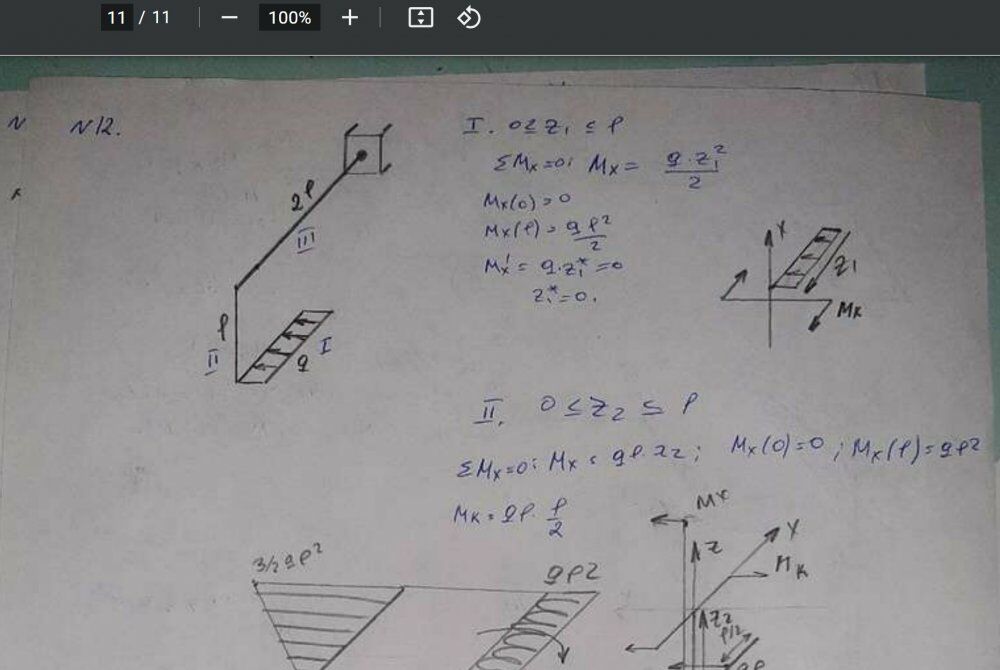 11 / 11
100%
N
N12.
2ℓ
III
ℓ
II
q
I
I. 0 ≤ z₁ ≤ ℓ
ΣMx=0: Mx = q·z₁²/2
Mx(0)=0
Mx(ℓ) = qℓ²/2
Mx' = q·z₁* = 0
z₁* = 0.
Y
z₁
Mx
II. 0 ≤ z₂ ≤ ℓ
ΣMx=0: Mx = qℓ·z₂; Mx(0)=0; Mx(ℓ)=qℓ²
Mк = qℓ·ℓ/2
Mx
Y
Z
Mк
z₂
ℓ/2
qℓ
3/2 qℓ²
qℓ2